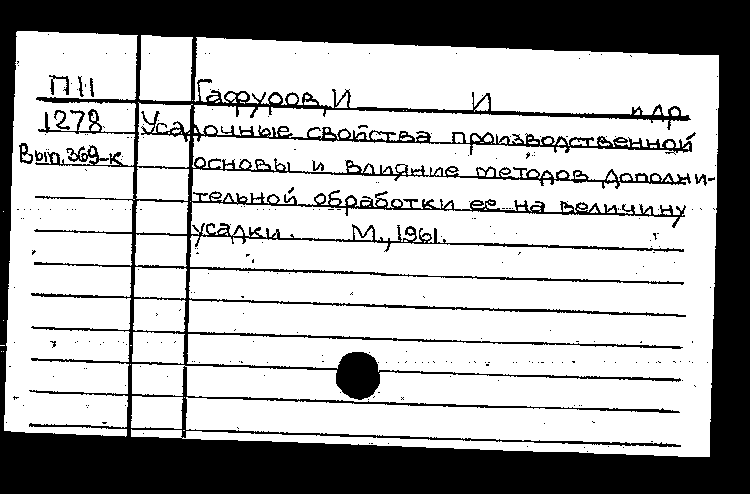 П11 Гафуров, И И и др.
1278 Усадочные свойства производственной
Вып. 369-к основы и влияние методов дополни-
тельной обработки ее на величину
усадки. М., 1961.